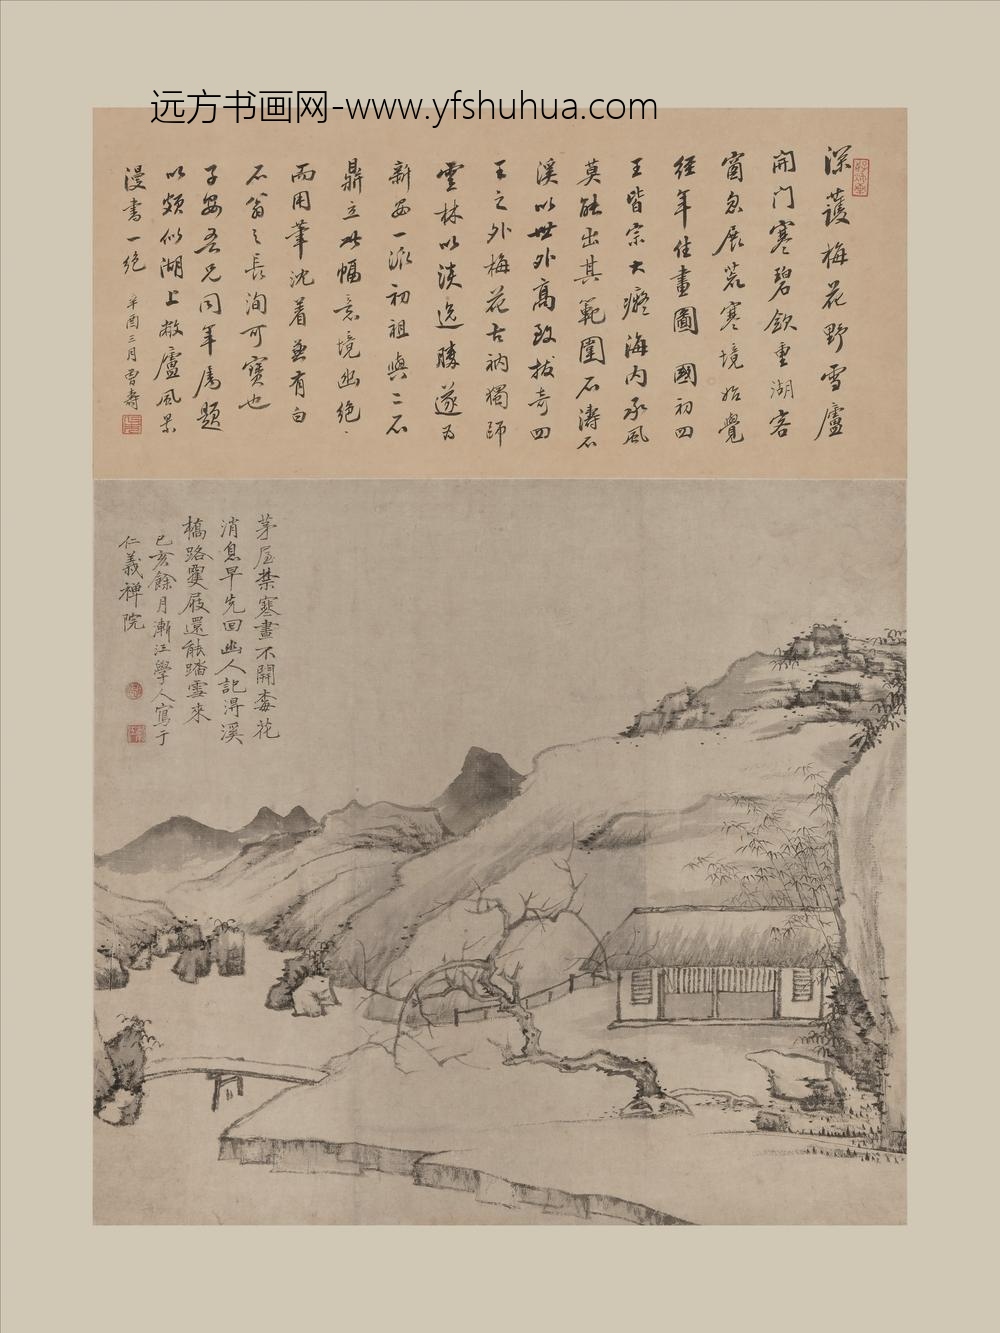 远方书画网-www.yfshuhua.com
深護梅花野雪廬
開門寒碧欲重湖客
窗忽展荒寒境始覺
經年住畫圖 國初四
王皆宗大癡海内承風
莫能出其範圍石濤石
溪以世外高致拔奇四
王之外梅花古衲獨師
雲林以淡逸勝遂为
新安一派初祖與二石
鼎立此幅意境幽絕
而用筆沈着兼有白
石翁之長洵可寶也
子安吾兄同年属題
以頗似湖上敝廬風景
漫書一絕 辛酉三月曾壽
茅屋禁寒晝不開梅花
消息早先回幽人記得溪
橋路蠟屐還能踏雪來
己亥餘月漸江學人寫于
仁義禅院